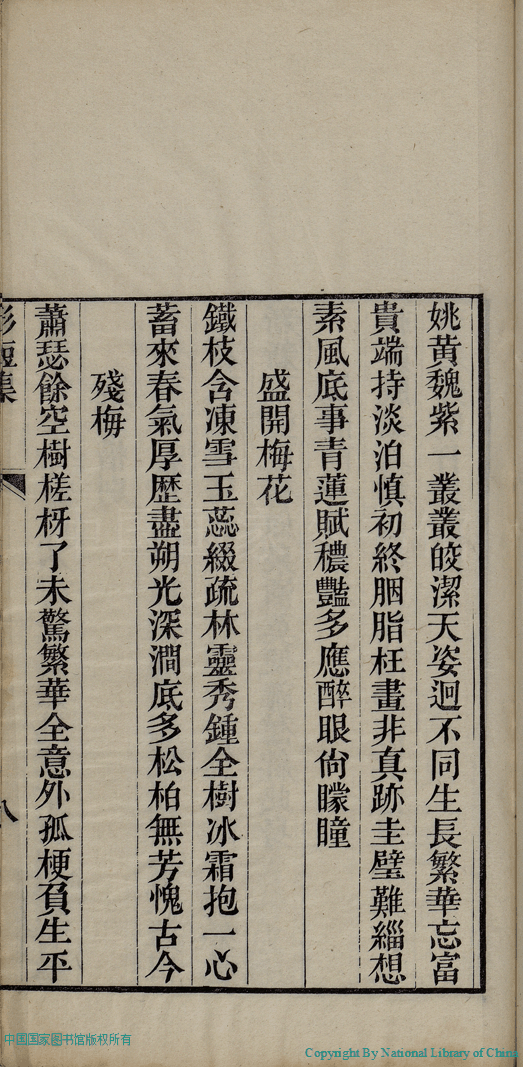 姚黃魏紫一叢叢皎潔天姿迥不同生長繁華忘富
貴端持淡泊慎初終胭脂枉畫非真跡圭璧難緇想
素風底事青蓮賦穠豔多應醉眼尙矇瞳
盛開梅花
鐵枝含凍雪玉蕊綴疏林靈秀鍾全樹冰霜抱一心
蓄來春氣厚歷盡朔光深澗底多松柏無芳愧古今
殘梅
蕭瑟餘空樹槎枒了未驚繁華全意外孤梗負生平
短集
八
中国国家图书馆版权所有
Copyright By National Library of China